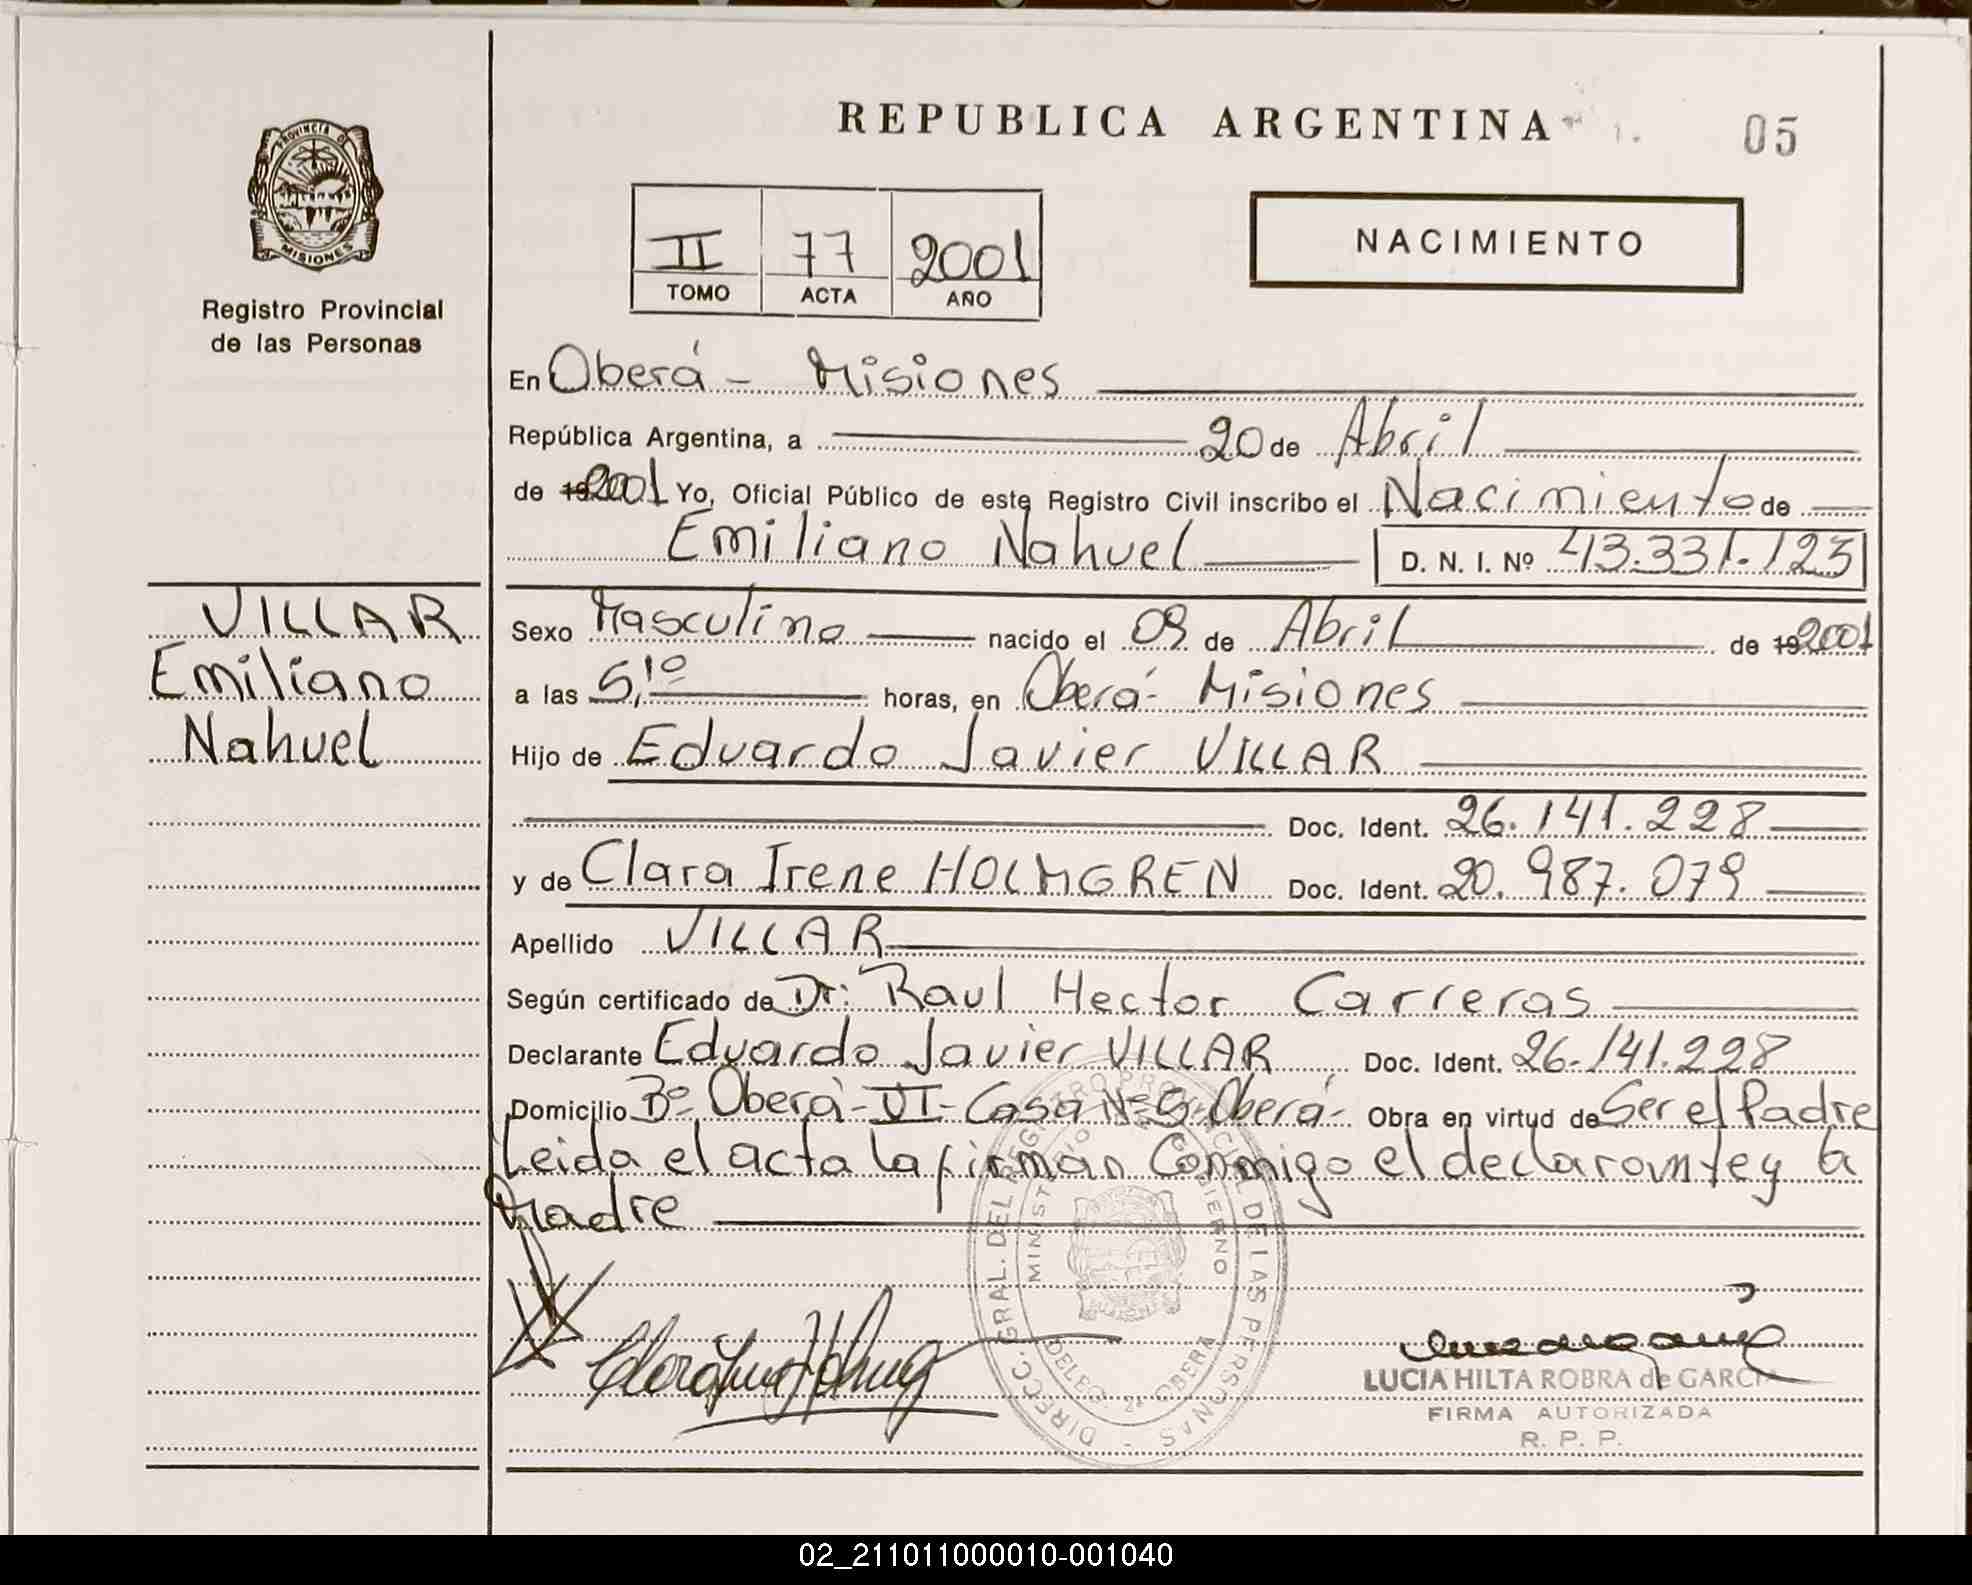 REPUBLICA ARGENTINA
05
PROVINCIA DE
MISIONES
Registro Provincial
de las Personas
II 77 2001
TOMO ACTA AÑO
NACIMIENTO
En Oberá - Misiones
República Argentina, a 20 de Abril
de 19 2001 Yo, Oficial Público de este Registro Civil inscribo el Nacimiento de
Emiliano Nahuel D. N. I. Nº 43.331.123
VILLAR
Emiliano
Nahuel
Sexo Masculino nacido el 09 de Abril de 19 2001
a las 5,10 horas, en Oberá - Misiones
Hijo de Eduardo Javier VILLAR
Doc. Ident. 26.141.228
y de Clara Irene HOLMGREN Doc. Ident. 20.987.079
Apellido VILLAR
Según certificado de Dr: Raul Hector Carreras
Declarante Eduardo Javier VILLAR Doc. Ident. 26.141.228
Domicilio Bº Oberá - VI - Casa Nº 5 - Oberá - Obra en virtud de Ser el Padre
Leida el acta la firman Conmigo el declarante y la
Madre
DIRECC. GRAL. DEL REGISTRO PROVINCIAL DE LAS PERSONAS
MINISTERIO GOBIERNO
DELEG. 2ª OBERA
LUCIA HILTA ROBRA de GARCIA
FIRMA AUTORIZADA
R. P. P.
02_211011000010-001040